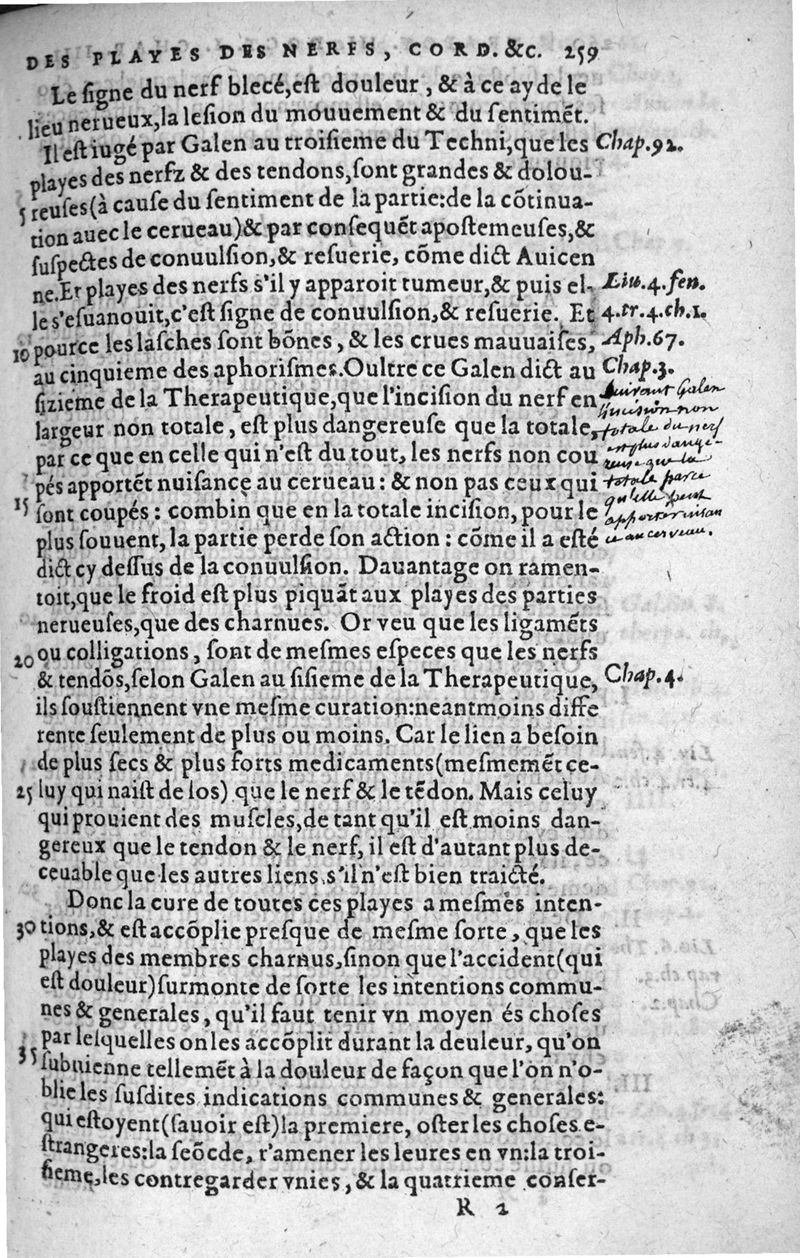 DES PLAYES DES NERFS, CORD. &c. 259
Le ſigne du nerf blecé,eſt douleur , & à ce ayde le
lieu nerueux,la leſion du mouuement & du ſentimẽt.
Il eſt iugé par Galen au troiſieme du Techni,que les
Chap.92.
playes des nerfz & des tendons,ſont grandes & dolou-
5
reuſes(à cauſe du ſentiment de la partie:de la cõtinua-
tion auec le cerueau)& par conſequẽt apoſtemeuſes,&
ſuſpectes de conuulſion,& reſuerie, cõme dict Auicen
ne.Et playes des nerfs s'il y apparoit tumeur,& puis el-
Liu.4.fen.
le s'eſuanouit,c'eſt ſigne de conuulſion,& reſuerie. Et
4.tr.4.ch.1.
10
pource les laſches ſont bõnes , & les crues mauuaiſes,
Aph.67.
au cinquieme des aphoriſmes.Oultre ce Galen dict au
Chap.3.
ſizieme de la Therapeutique,que l'inciſion du nerf en
Suivant Galen
largeur non totale , eſt plus dangereuſe que la totale,
l'incision non
totale du nerf
par ce que en celle qui n'eſt du tout, les nerfs non cou
est plus dange-
reuse que la
pés apportẽt nuiſance au cerueau : & non pas ceux qui
totale parce
15
ſont coupés : combin que en la totale inciſion, pour le
qu'elle peut
apporter nuisan
plus ſouuent, la partie perde ſon action : cõme il a eſté
ce au cerveau.
dict cy deſſus de la conuulſion. Dauantage on ramen-
toit,que le froid eſt plus piquãt aux playes des parties
nerueuſes,que des charnues. Or veu que les ligamẽts
20
ou colligations , ſont de meſmes eſpeces que les nerfs
& tendõs,ſelon Galen au ſiſieme de la Therapeutique,
Chap.4.
ils ſouſtiennent vne meſme curation:neantmoins diffe
rente ſeulement de plus ou moins. Car le lien a beſoin
de plus ſecs & plus forts medicaments(meſmemẽt ce-
25
luy qui naiſt de los) que le nerf & le tẽdon. Mais celuy
qui prouient des muſcles,de tant qu'il eſt moins dan-
gereux que le tendon & le nerf, il eſt d'autant plus de-
ceuable que les autres liens s'il n'eſt bien traicté.
Donc la cure de toutes ces playes a meſmes inten-
30
tions,& eſt accõplie preſque de meſme ſorte , que les
playes des membres charnus,ſinon que l'accident(qui
eſt douleur)ſurmonte de ſorte les intentions commu-
nes & generales , qu'il faut tenir vn moyen és choſes
par leſquelles on les accõplit durant la deuleur, qu'on
35
ſubuienne tellemẽt à la douleur de façon que l'on n'o-
blie les ſuſdites indications communes & generales:
qui eſtoyent(ſauoir eſt)la premiere, oſter les choſes e-
ſtrangeres:la ſeõcde, r'amener les leures en vn:la troi-
ſieme,les contregarder vnies , & la quatrieme conſer-
R 2